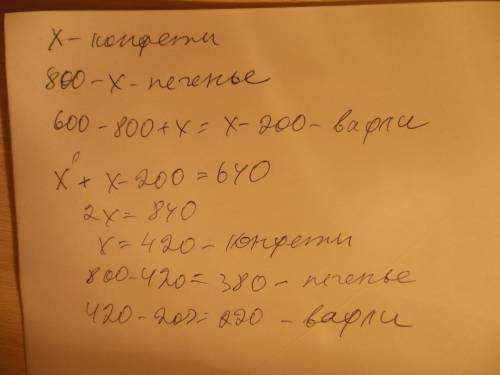 x – конфеты
800 – x – печенье
600 – 800 + x = x – 200 – вафли
x + x – 200 = 640
2x = 840
x = 420 – конфеты
800 – 420 = 380 – печенье
420 – 200 = 220 – вафли